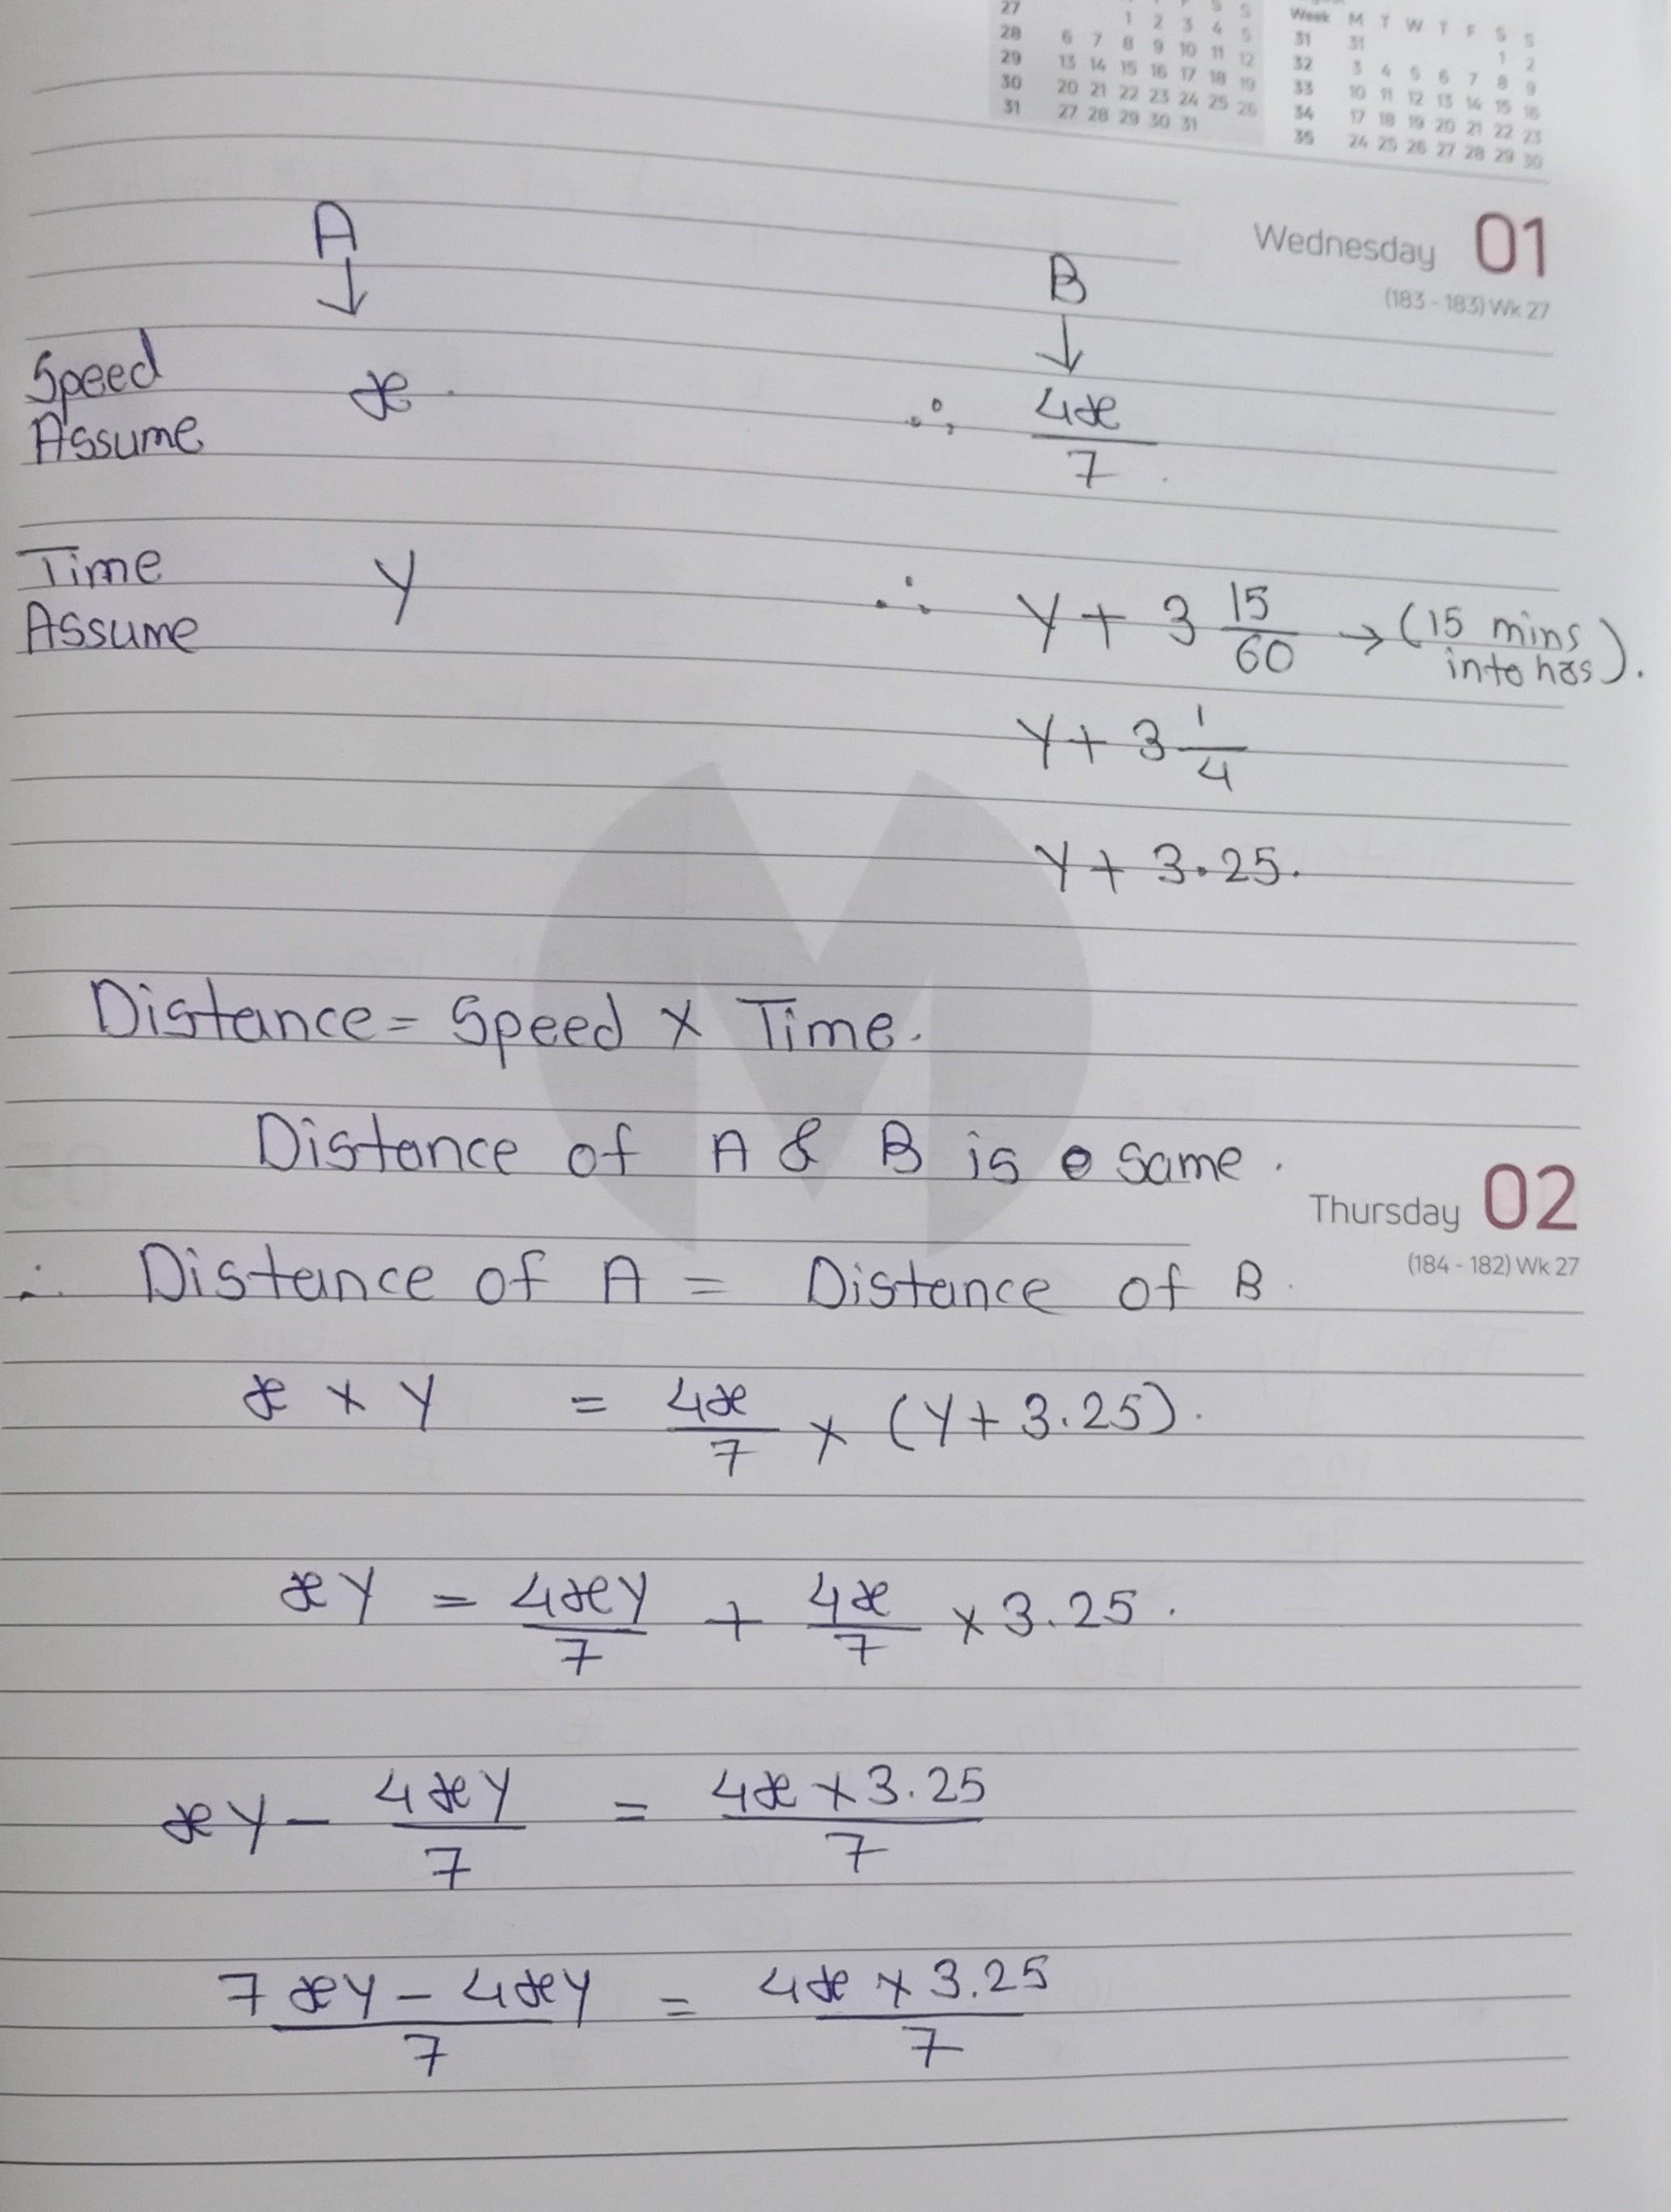 27 1 2 3 4 5
28 6 7 8 9 10 11 12
29 13 14 15 16 17 18 19
30 20 21 22 23 24 25 26
31 27 28 29 30 31
Week M T W T F S S
31 31 1 2
32 3 4 5 6 7 8 9
33 10 11 12 13 14 15 16
34 17 18 19 20 21 22 23
35 24 25 26 27 28 29 30
Wednesday 01
(183 - 183) Wk 27
A B
Speed Assume x ∴ 4x/7
Time Assume y ∴ y + 3 15/60 → (15 mins into hrs).
y + 3 1/4
y + 3.25.
Distance = Speed × Time.
Distance of A & B is same.
Thursday 02
(184 - 182) Wk 27
∴ Distance of A = Distance of B.
x × y = 4x/7 × (y + 3.25).
xy = 4xy/7 + 4x/7 × 3.25.
xy - 4xy/7 = 4x × 3.25/7
7xy - 4xy/7 = 4x × 3.25/7